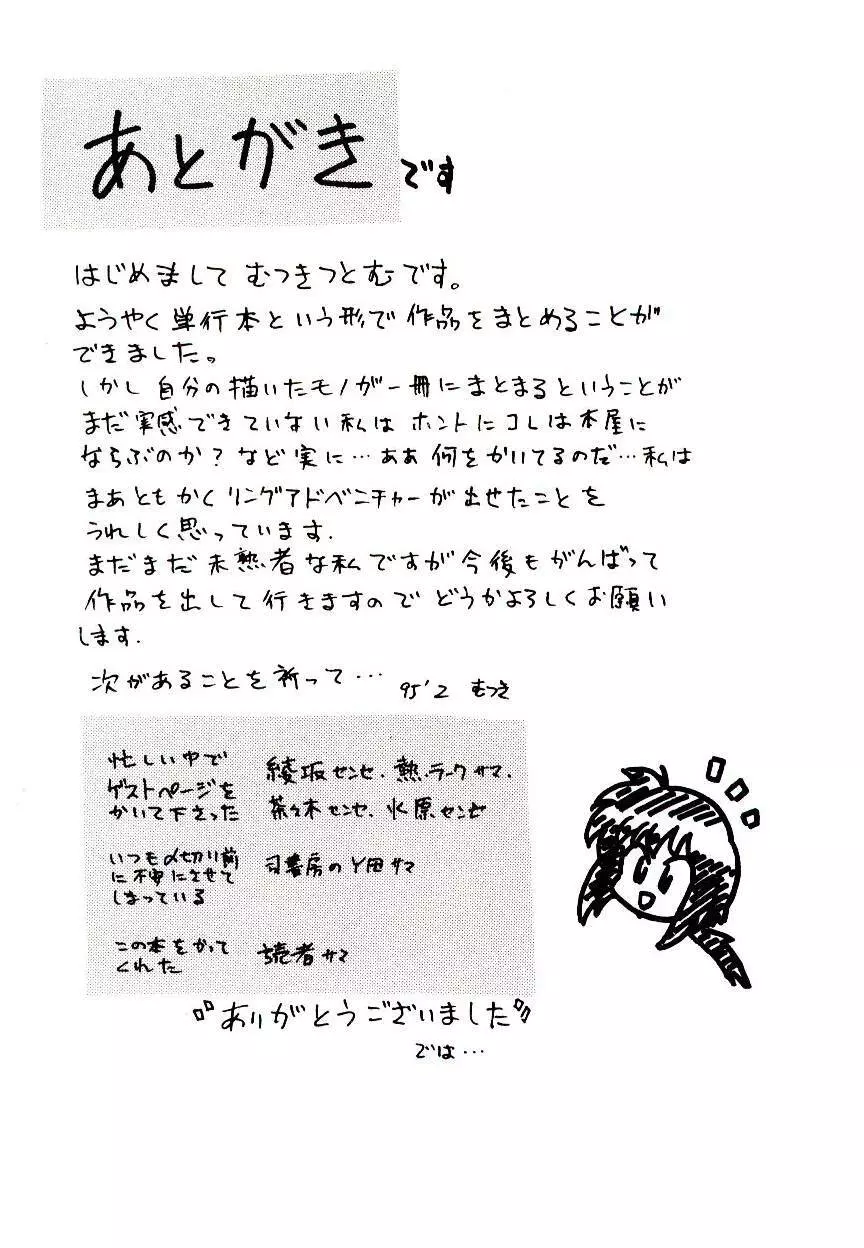 あとがきです
はじめまして むつきつとむです。
ようやく単行本という形で作品をまとめることが
できました。
しかし自分の描いたモノが一冊にまとまるということが
まだ実感できていない私は ホントにコレは本屋に
ならぶのか？など実に…ああ何をかいてるのだ…私は
まあともかくリングアドベンチャーが出せたことを
うれしく思っています.
まだまだ未熟者な私ですが今後もがんばって
作品を出して行きますのでどうかよろしくお願い
します.
次があることを祈って… 95'2 むつき
忙しい中で
ゲストページを
かいて下さった
綾坂センセ、熱、ラークサマ.
茶々木センセ、水原センセ
いつも〆切り前
に不安にさせて
しまっている
司書房のY田サマ
この本をかって
くれた
読者サマ
『ありがとうございました』
では…